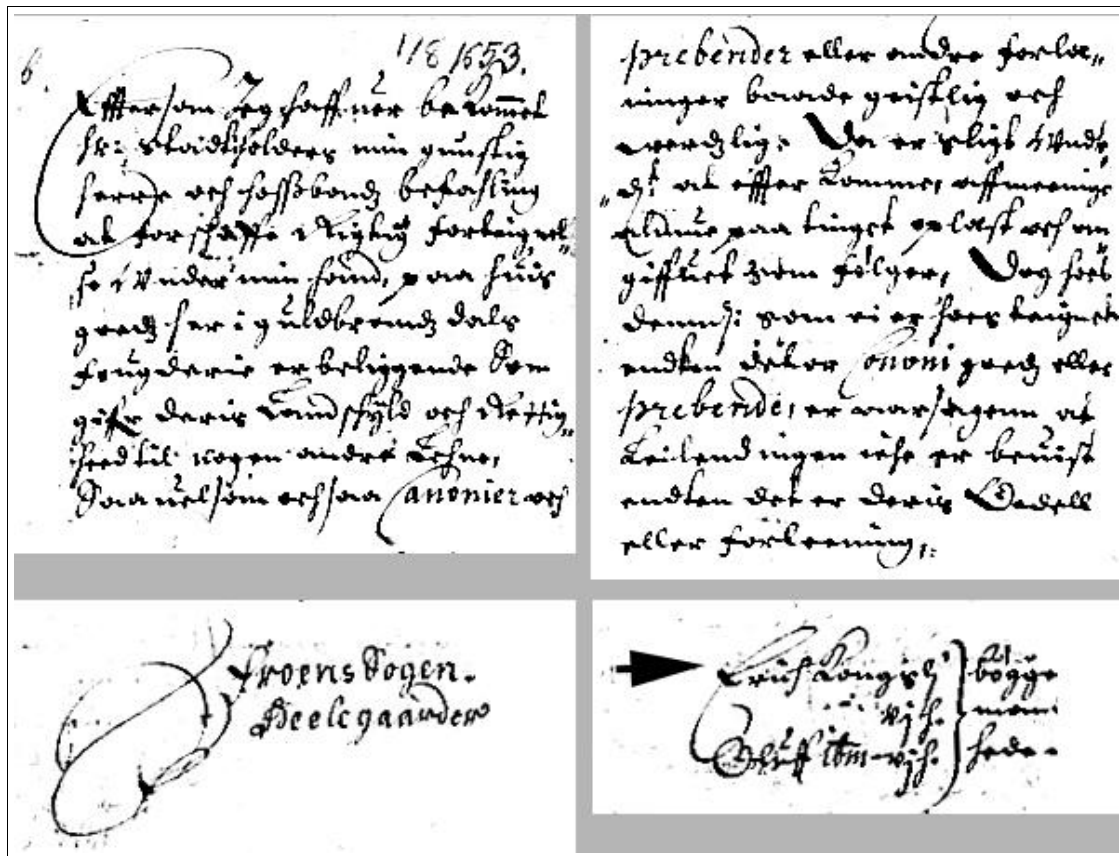 6.
1/8 1653.
Efftersom Jeg haffuer bekommet
hr: Stadtholders min gunstig
herre och hossbondz befahling
at forschaffe Rigtig forteignel-
se under min haand, paa huis
godz her i guldbrandz dals
fougderie er beliggende Som
giffr deris Landschyld och Rettig-
heed til nogen andre Lehne,
Saauelsom ochsaa Canonier och
prebender eller andre forlee-
ninger baade geistlig och
werdzlig: Da er sligt
at effter komme, aff meenige
Almue paa tinget oplæst och an
giffuet som følger, Dog hoes
som ei er hoes teignet
endten det er Canoni godz eller
prebende, er aarsagenn at
Leilendingen iche er beuist
endten det er deris Oedell
eller forleening,:
Froens Sogen.
Heele gaarder
Erich Kongsli
vjh.
Oluff ibm - vjh.
bögge
mom
hede.